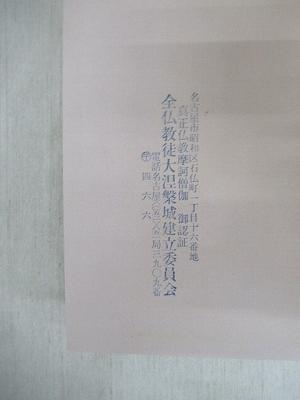 名古屋市昭和区石仏町一丁目十六番地
真正仏教摩訶僧伽・御認証
全仏教徒大涅槃城建立委員会
電話名古屋(〇五二)八三二局三九〇九番
〒四六六